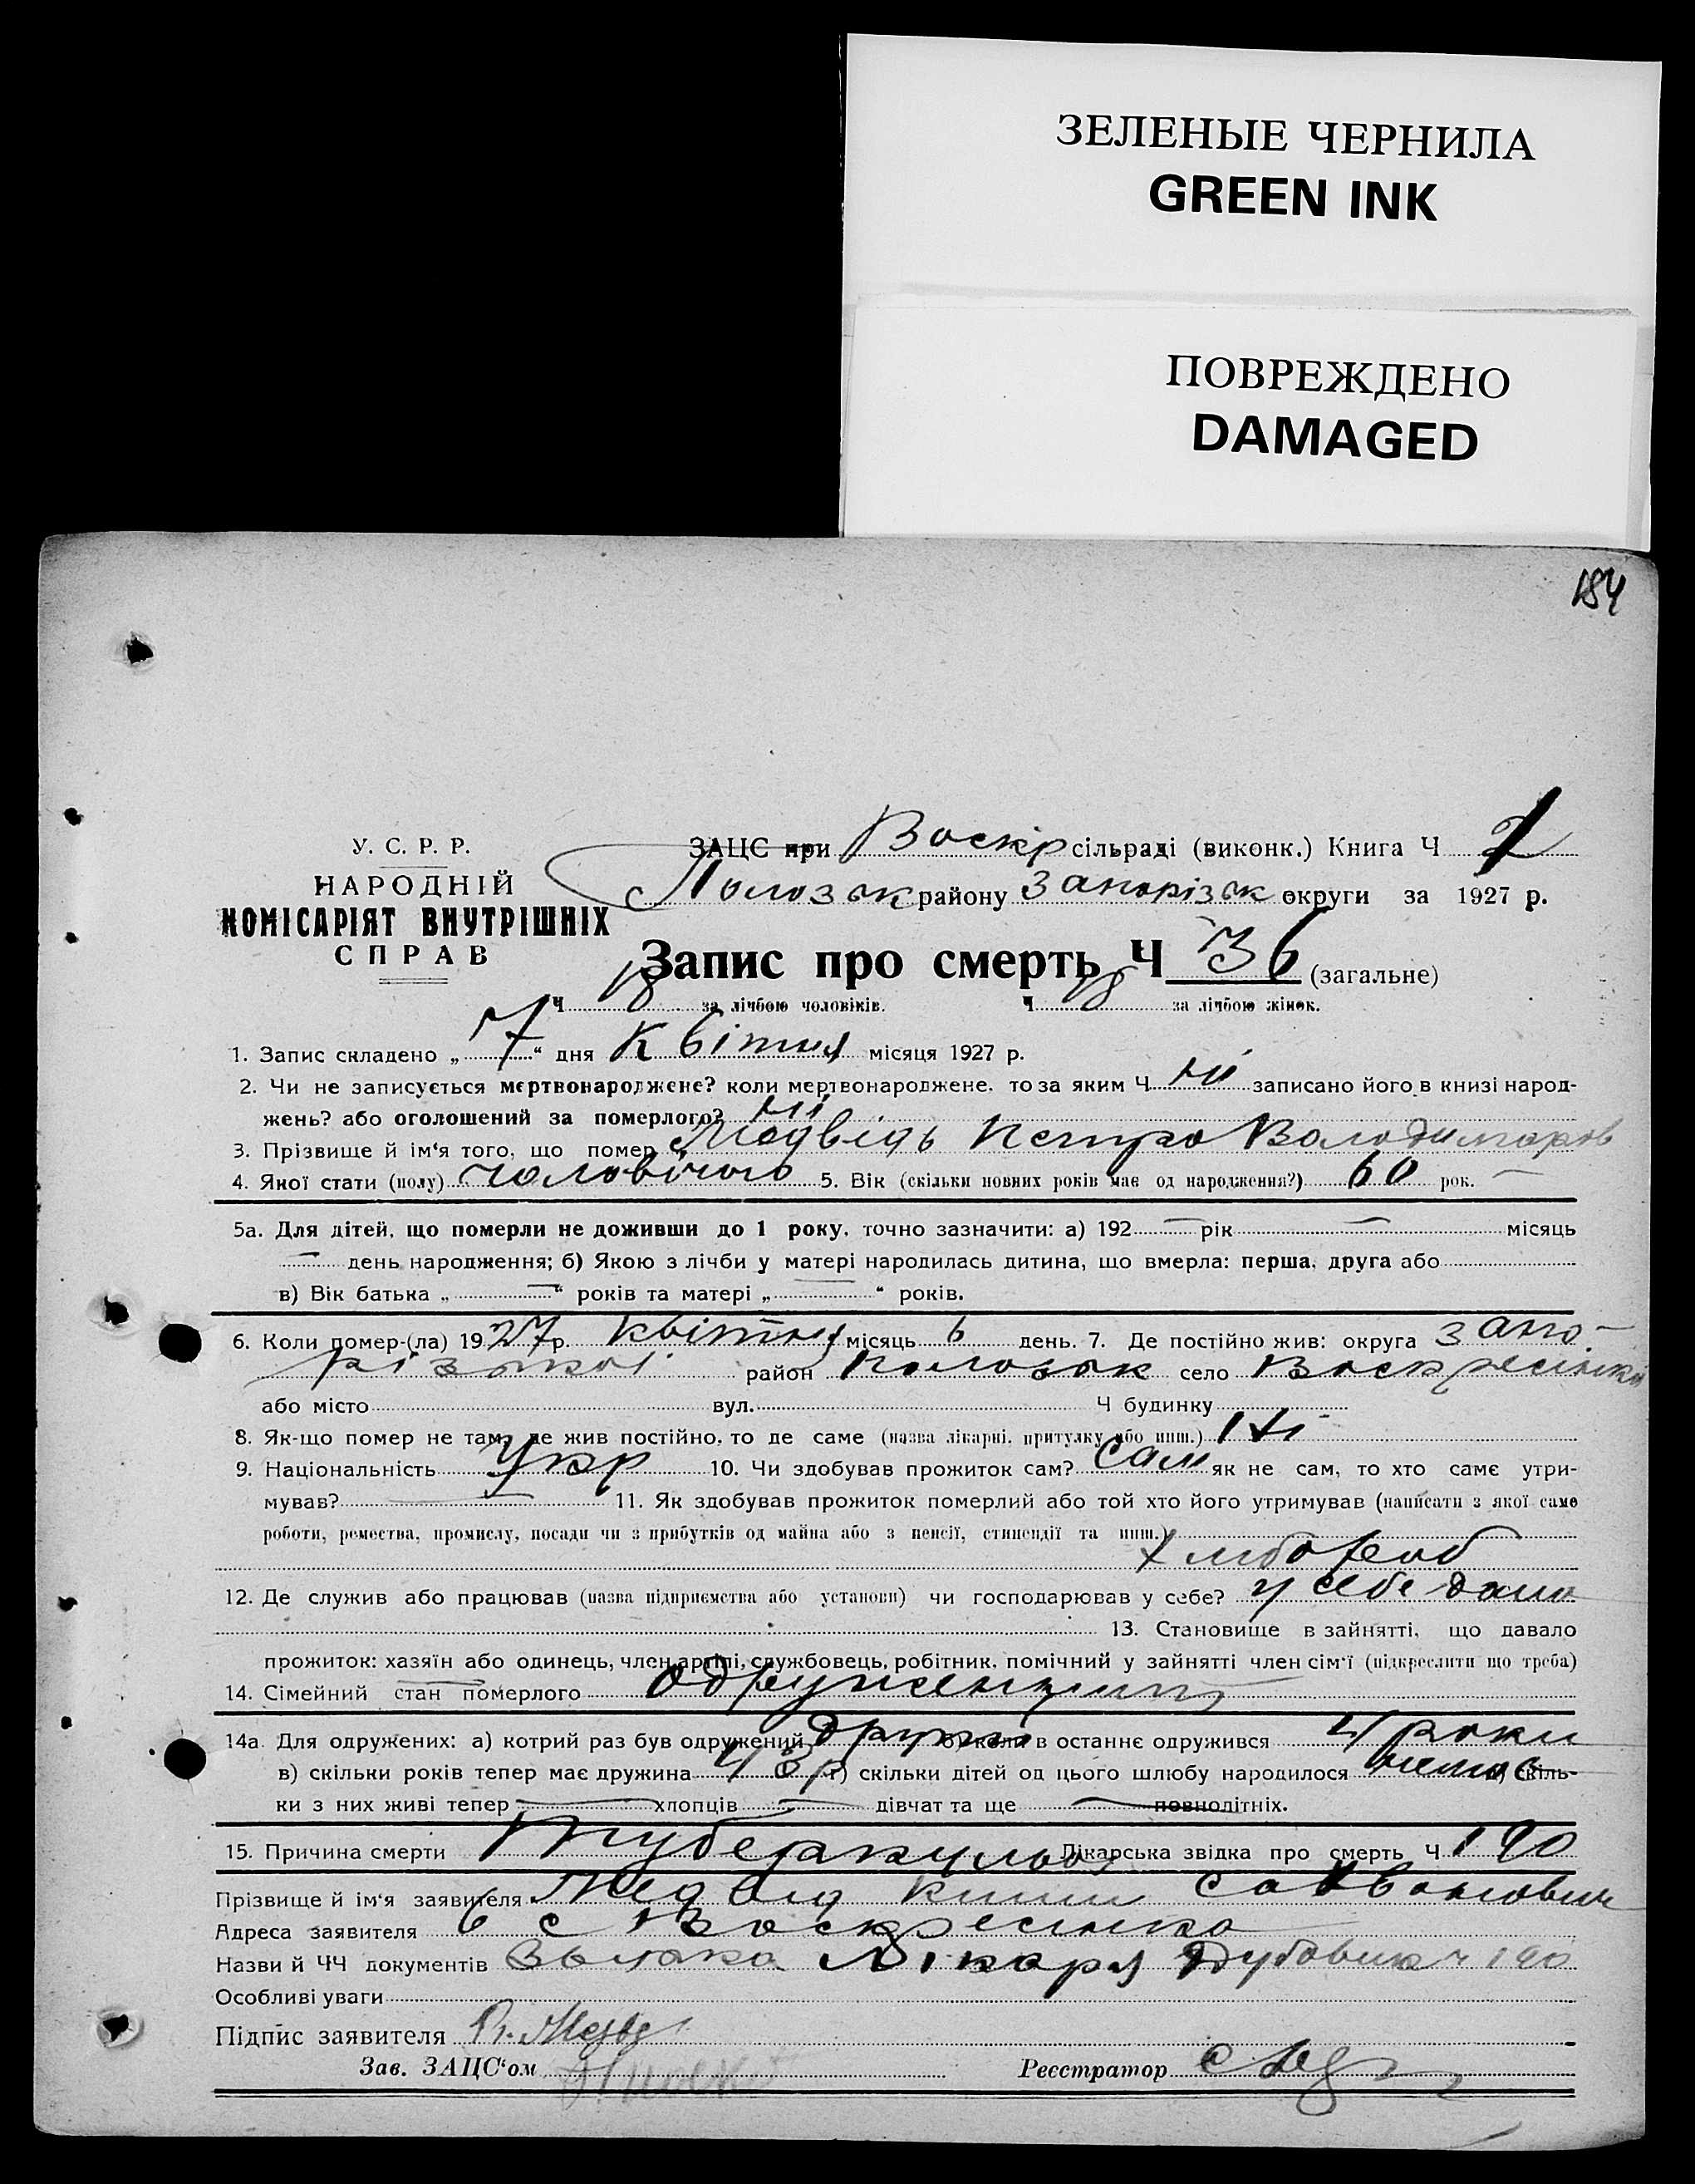 ЗЕЛЕНЫЕ ЧЕРНИЛА
GREEN INK
ПОВРЕЖДЕНО
DAMAGED
184
У. С. Р. Р.
НАРОДНІЙ
КОМІСАРІЯТ ВНУТРІШНІХ
СПРАВ
ЗАЦС при Воскр сільраді (виконк.) Книга Ч
Полозьк району Запорізьк округи за 1927 р.
Запис про смерть Ч 36 (загальне)
Ч 18 за лічбою чоловіків. Ч 18 за лічбою жінок.
1. Запис складено „ 7 “ дня Квітня місяця 1927 р.
2. Чи не записується мертвонароджене? коли мертвонароджене, то за яким Ч ні записано його в книзі народ-
жень? або оголошений за померлого? ні
3. Прізвище й ім‘я того, що помер Медвідь Петро Володимиров
4. Якої стати (полу) чоловічого 5. Вік (скільки повних років має од народження?) 60 рок.
5а. Для дітей, що померли не доживши до 1 року, точно зазначити: а) 192 — рік — місяць
— день народження; б) Якою з лічби у матері народилась дитина, що вмерла: перша, друга або
в) Вік батька „ — “ років та матері „ — “ років.
6. Коли помер-(ла) 1927 р. квітня місяць 6 день. 7. Де постійно жив: округа Запо-
різької район Полозьк село Воскресінка
або місто вул. Ч будинку
8. Як-що помер не там, де жив постійно, то де саме (назва лікарні, притулку або инш.) ні
9. Національність Укр 10. Чи здобував прожиток сам? Сам як не сам, то хто саме утри-
мував? — 11. Як здобував прожиток померлий або той хто його утримував (написати з якої саме
роботи, ремества, промислу, посади чи з прибутків од майна або з пенсії, стипендії та инш.)
хлібороб
12. Де служив або працював (назва підприємства або установи) чи господарював у себе? у себе дома
13. Становище в зайнятті, що давало
прожиток: хазяїн або одинець, член артілі, службовець, робітник, помічний у зайнятті член сім‘ї (підкреслити що треба)
14. Сімейний стан померлого одружений
14а. Для одружених: а) котрий раз був одружений другий б) коли в останнє одружився 4 роки
в) скільки років тепер має дружина 43 р г) скільки дітей од цього шлюбу народилося немає д) скіль-
ки з них живі тепер — хлопців — дівчат та ще — повнолітніх.
15. Причина смерти Туберкульоз Лікарська звідка про смерть Ч 190
Прізвище й ім‘я заявителя Медвід
Адреса заявителя с Воскресінка
Назви й ЧЧ документів лікаря Дубовик ч 190
Особливі уваги
Підпис заявителя
Зав. ЗАЦС‘ом Реєстратор